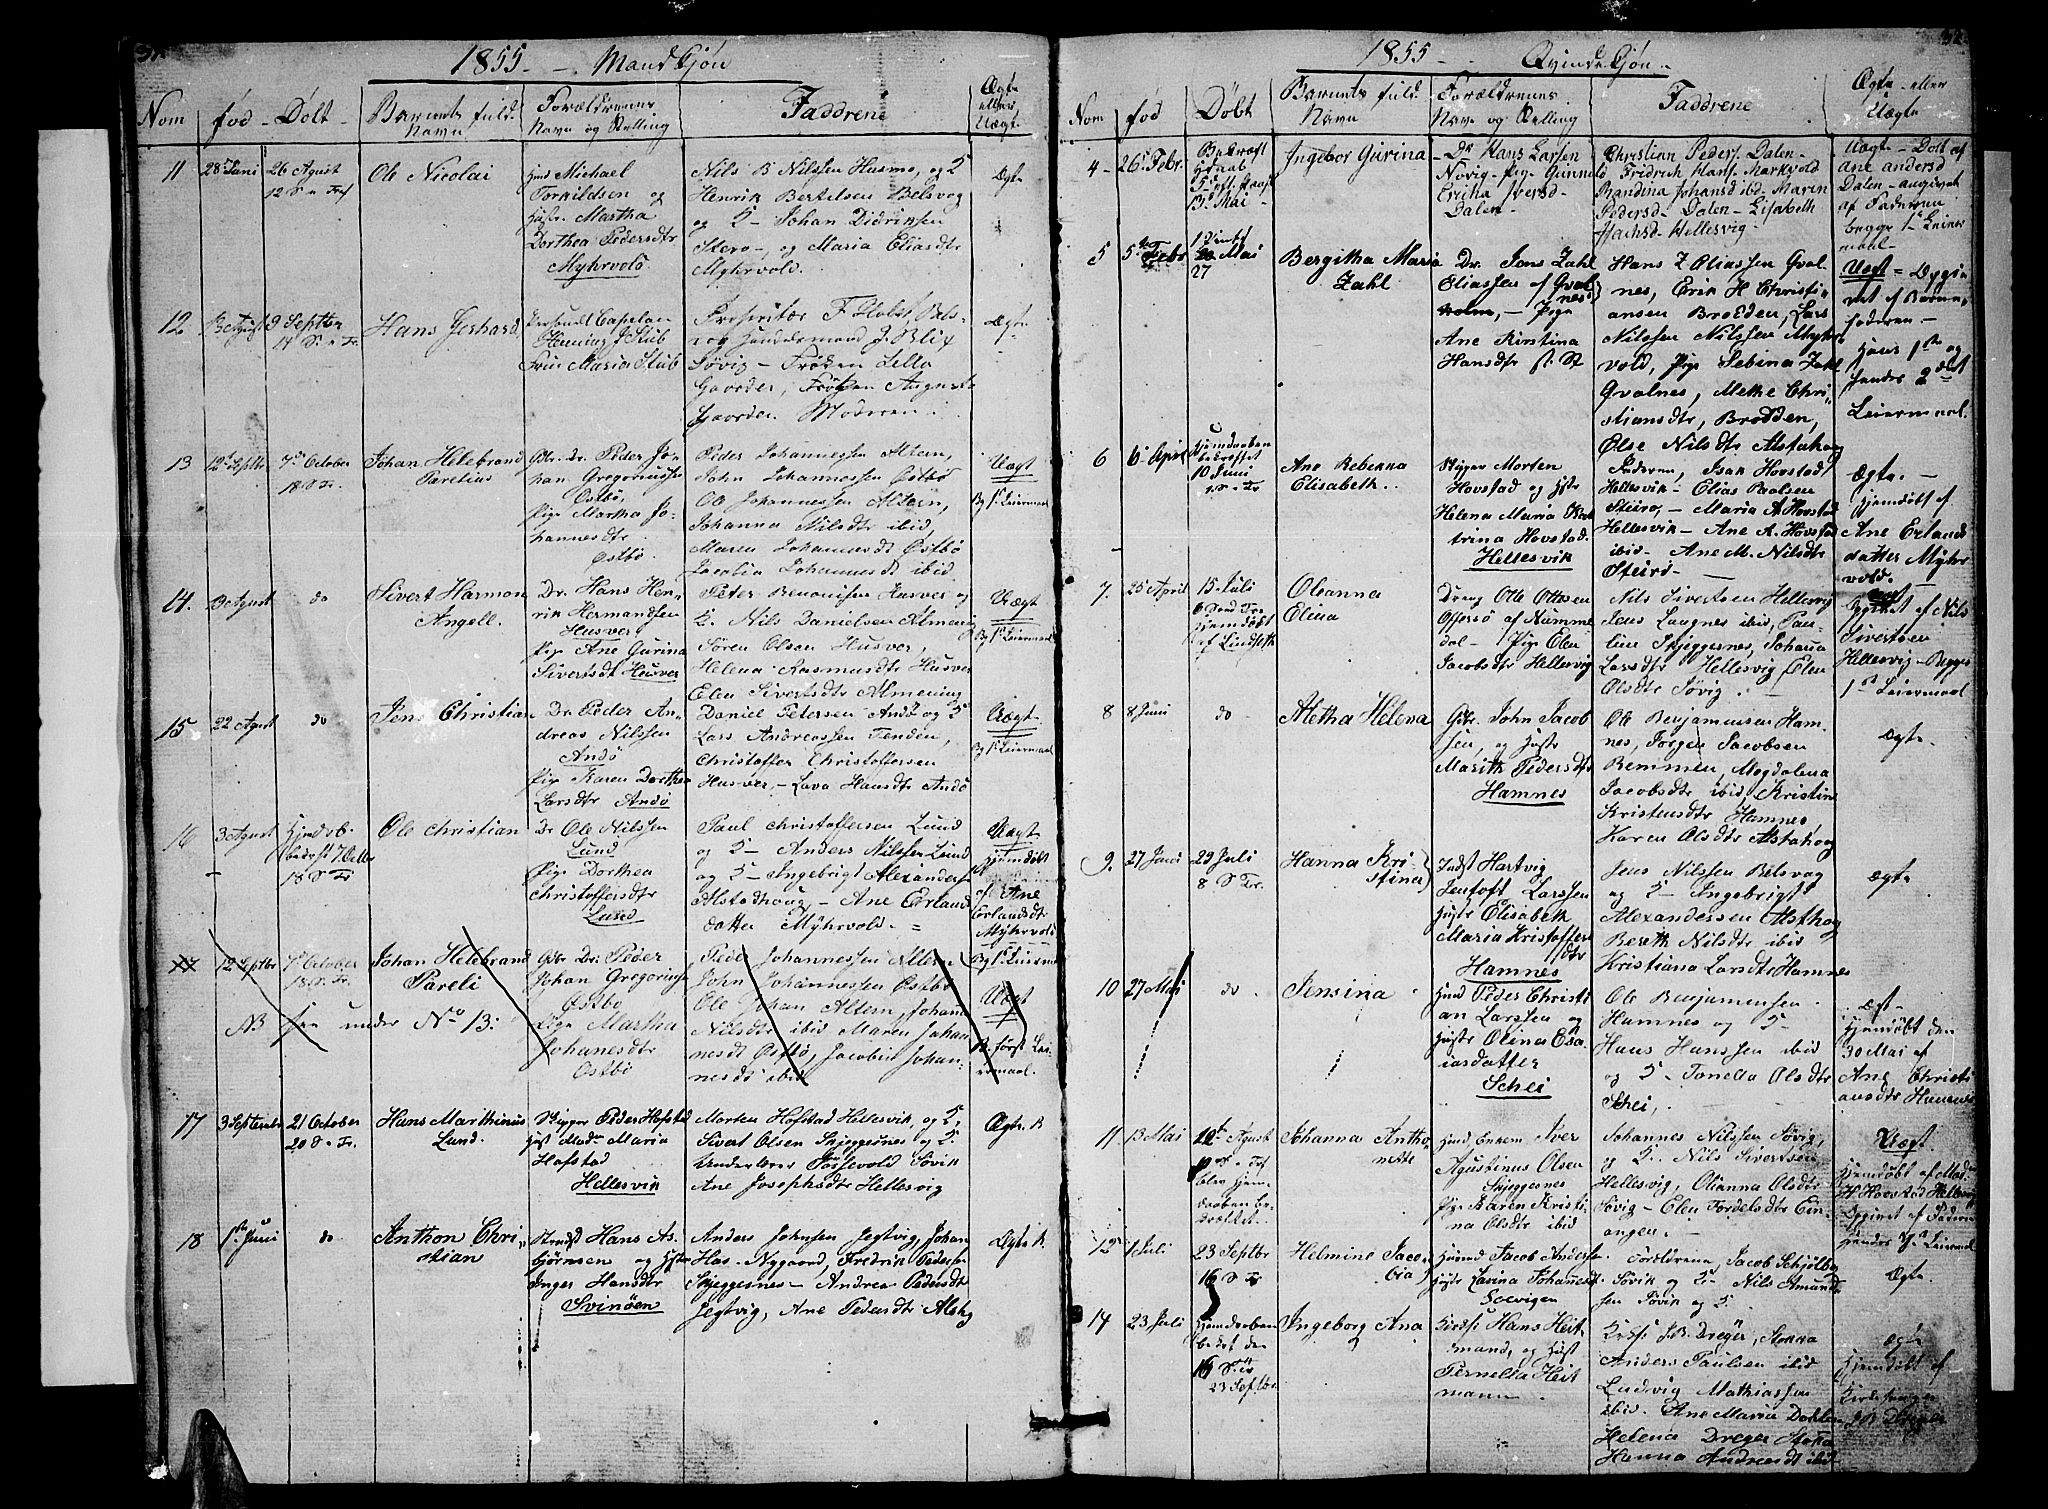 1855 - Mandkjøn
Nom
fød - Døbt -
Barnets fuld.
Navn
Forældrenes
Navn og Stelling
Faddrene
Ægte
eller
Uægte
11
28 Juni
26 Agust
12 S. e. Tref
Ole Nicolai
Huusd Michael
Torkildsen og
Hustr. Martha
Dorthea Pedersdtr
Myhrvold
Nils B Nilssen Husmo, og
Henrik Bertelsen Belsvog
og Johan Didriksen
Stero, og Maria Eliasdtr
Myhrvold.
Ægte
12
13 Agust
9 Septbr
14 S. e. Tr.
Hans Gerhard
Personel Capelan
Henning J Stub
Frue Maria Stub
Proprietær F Holst Bels-
vog Handelsmand J. Blix
Søvig - Frøken Lella
Gaarder, Frøken Augusta
Gaarder Moderen.
Ægt.
13
12 Septbr
7de October
18 S. Tr.
Johan Hilebrand
Parelius
Gbr. Dr. Peder Jo-
han Gregoriussen
Østbø,
Pige Martha Jo-
hannesdtr
Østbø.
Peder Johannessen Altern,
John Johannessen Østbø
Ole Johannessen Altern,
Johanna Nilsdtr ibid,
Maren Johannesdt Østbø
Jacobia Johannesdt ibid
Uægt
Bg 1st Leiermaal
14.
13 Agust
do
Sivert Harmon
Angell.
Dr. Hans Hen-
rik Hermandsen
Husver
Pige Ane Gurina
Sivertsdt Husver
Peter Benonisen Husver og
Nils Danielsen Almening
Søren Olsen Husver,
Helena Rasmusdt Husver
Elen Sivertsdtr Almening
Uægt
Bg 1st Leiermaal
15
22 Agust
do
Jens Christian
Dr Peder An-
dreas Nilssen
Andø
Pige Karen Dorthea
Larsdtr Andø
Daniel Petersen Andø og
Lars Andreassen Tenden,
Christoffer Christoffersen
Husver, - Lava Hansdtr Andø
Uægt.
Bg 1st Leiermaal
16
3 Agust
Hjemdøb.
bekræft 7 Octbr
18 S Tr
Ole Christian
Dr Ole Nilssen
Lund
Pige Dorthea
Christoffersdtr
Lund
Paul Christoffersen Lund
og Anders Nilssen Lund
og Ingebrigt Alexanders
Alstadhoug - Ane Erlands
datter Myhrvold.
Uægt
Hjemdøbt
af Ane
Erlandsdtr
Myhrvold
Bg 1st Leierm
17
12 Septbr
7de October
18 S. Tr.
Johan Helebrand
Pareli
Gbr Dr. Peder
Johan Gregoriuss
Østbø
Pige Martha
Johanesdtr
Østbø
Peder Johannessen Altern
John Johannessen Østbø
Ole Johan Altern, Johana
Nilsdtr ibid Maren Johan
nesdt Østbø, Jacobia Johan-
nesdt ibid
Uægt
B. først Lei-
ermaal.
NB see under No 13:
17
3 September
21 October
20 S e Tr.
Hans Marthinus
Lund.
Skipper Peder Hofstad
Hust Madm Maria
Hofstad
Hellesvik
Morten Hofstad Hellesvik, og
Sivert Olsen Skjeggesnes og
Underlærer Fossevold Søvik
Ane Josephsdtr Hellesvig
Ægte B
18
1ste Juni
do
Anthon Chri-
stian
Strandst Hans As-
bjørnsen og Hustr
Inger Hansdtr
Svinøen
Anders Johnsen Jegtvig, Johan
Has. Nygaard, Fredrik Pedersen
Skjeggesnes - Andrea Pedersdt
Jegtvig, Ane Pedersdtr Alsthg
Ægte B.
1855 - Qvindekjøn -
Nom
fød
Døbt
Barnets fuld.
Navn
Forældrenes
Navn og Stelling
Faddrene
Ægte eller
Uægte
4
26 Febr.
Bekræft
13 Mai
Ingebor Gurina
Dr Hans Larsen
Novig - Pige Gunnel
Ericha Iversd
Dalen
Christian Peders. Dalen -
Fridrich Hans. Markvold
Randina Johansd ibid. Maren
Pedersd - Dalen - Lisabeth
Isachsd - Hellesvig -
Uægt - Døbt af
Ane Andersd
Dalen - angivet
af Faderen
begge 1st Leier
maal -
5
5te Febr
1 Pintst
27 Mai
Bergitha Maria
Zahl
Dr. Jons Zahl
Eliassen af Qval
nes - Pige
Ane Kirstina
Hansdtr
Hans Z Eliassen Qval
nes, Erik H Christi-
ansen Brodden, Lars
Nilssen Nilssen Myhr
vold, Pige Sebina Zahl
Qvalnes, Methe Chri-
stiansdtr, Brodden,
Olse Nilsdtr Alstahog
Uægt = Opgi-
vet af Barne-
faderen -
Hans 1ste og
hendes 2det
Leiermaal.
6
6 April
Hjemdaaben
bekræftet
10 Juni
1 S e Tr
Ane Rebekka
Elisabeth.
Skipper Morten
Hovstad og Hstr
Helena Maria Kat
trina Hovstad
Hellesvik
Faderen, Isak Hovstad
Hellesvik - Elias Paulsen
Steiro, - Maria A Hovstad
Hellesvik - Ane A. Hovstad
ibid - Ane M. Nilsdtr
Steiro -
Ægte -
Hjemdøbt af
Ane Erlands
datter Myhr
vold.
7.
25 April
15 Juli
6 Sønd Tr
Hjemdøbt
af Lindseth
Oleanna
Elina
Dreng Ole Ottesen
Offersø af Numme
dal - Pige Elen
Jacobsdtr Hellesvig
Nils Sivertsen Hellesvig
Jens Langnes ibid, Pau-
line Skjeggesnes, Johana
Larsdtr Hellesvig Elen
Olsdtr Søvig.
Uægt
Opgivet af Nils
Sivertsen
Hellesvig - Begges
1st Leiermaal
8
8 Juni
do
Aletha Helena
Gbr. John Jacob
sen, og Hustr
Marith Pedersdtr
Hamnes
Ole Benjaminsen Ham-
nes, Jørgen Jacobsen
Remmen, Magdalena
Jacobsdtr ibid Kristin
Kristensdtr Hamnes
Karen Olsdtr Alstahog
Ægte.
9.
27 Juni
29 Juli
8 S Tr.
Hanna Kri-
stina
Indst Hartvig
Jentoft Larssen
Hustr Elisabeth
Maria Kristoffers
dtr
Hamnes
Jens Nilssen Belsvag
og Ingebrigt
Alexandersen Alsthog
Bereth Nilsdtr ibid
Kristiana Larsdtr Hamnes
Ægte
10
27 Mai
do
Jensina
Huusd Peder Christi
an Larssen og
Hustr Olina Esa-
iasdatter
Schei
Ole Benjaminsen
Hamnes og
Hans Hanssen ibid
og Tonetta Olsdtr
Schei,
Ægt -
Hjemdøbt den
30 Mai af
Ane Christi
ansdtr Hamnes
11
13 Mai
12te Agust
10 S. e. Tref
blev Hjem-
daaben be-
kræftet.
Johanna Antho
nette
Huusd Enkem Iver
Agustinus Olsen
Skjeggesnes
Pige Karen Kristi-
na Olsdtr ibid
Johannes Nilssen Søvig,
og Nils Sivertsen
Hellesvig, Olianna Olsdtr
Søvig - Elen Tordelsdtr Ein-
angen.
Uægt
Hjemdøbt af Madm
H Hovstad Hellesvig
Opgivet af Faderen
Hendes 1st Leiermaal
12
1 Juli
23 Septbr
16 S Tr
Helmine Jaco-
bia
Huusmd Jacob Andersen
Hustr Lavina Johanesdt
Soevigen
Forældrene, Jacob Schjølberg
Søvik og Nils Amund-
sen Søvik og
Ægte.
14
23 Juli
Hjemdaaben
bekræt den
16 S. e Tr
23 Septbr
Ingeborg Ana
Kirks: Hans Heit
mand, og Hust
Pernella Heit
mann
Kirks: J.B. Dreger, Stokka
Anders Paulsen ibid
Ludvig Mathiassen
ibid. Ane Maria Dahlen
Helena Dreger Stokka
Hanna Andreasdt ibid
Ægt
Hjemdøbt af
Kirkesanger
J B Dreger